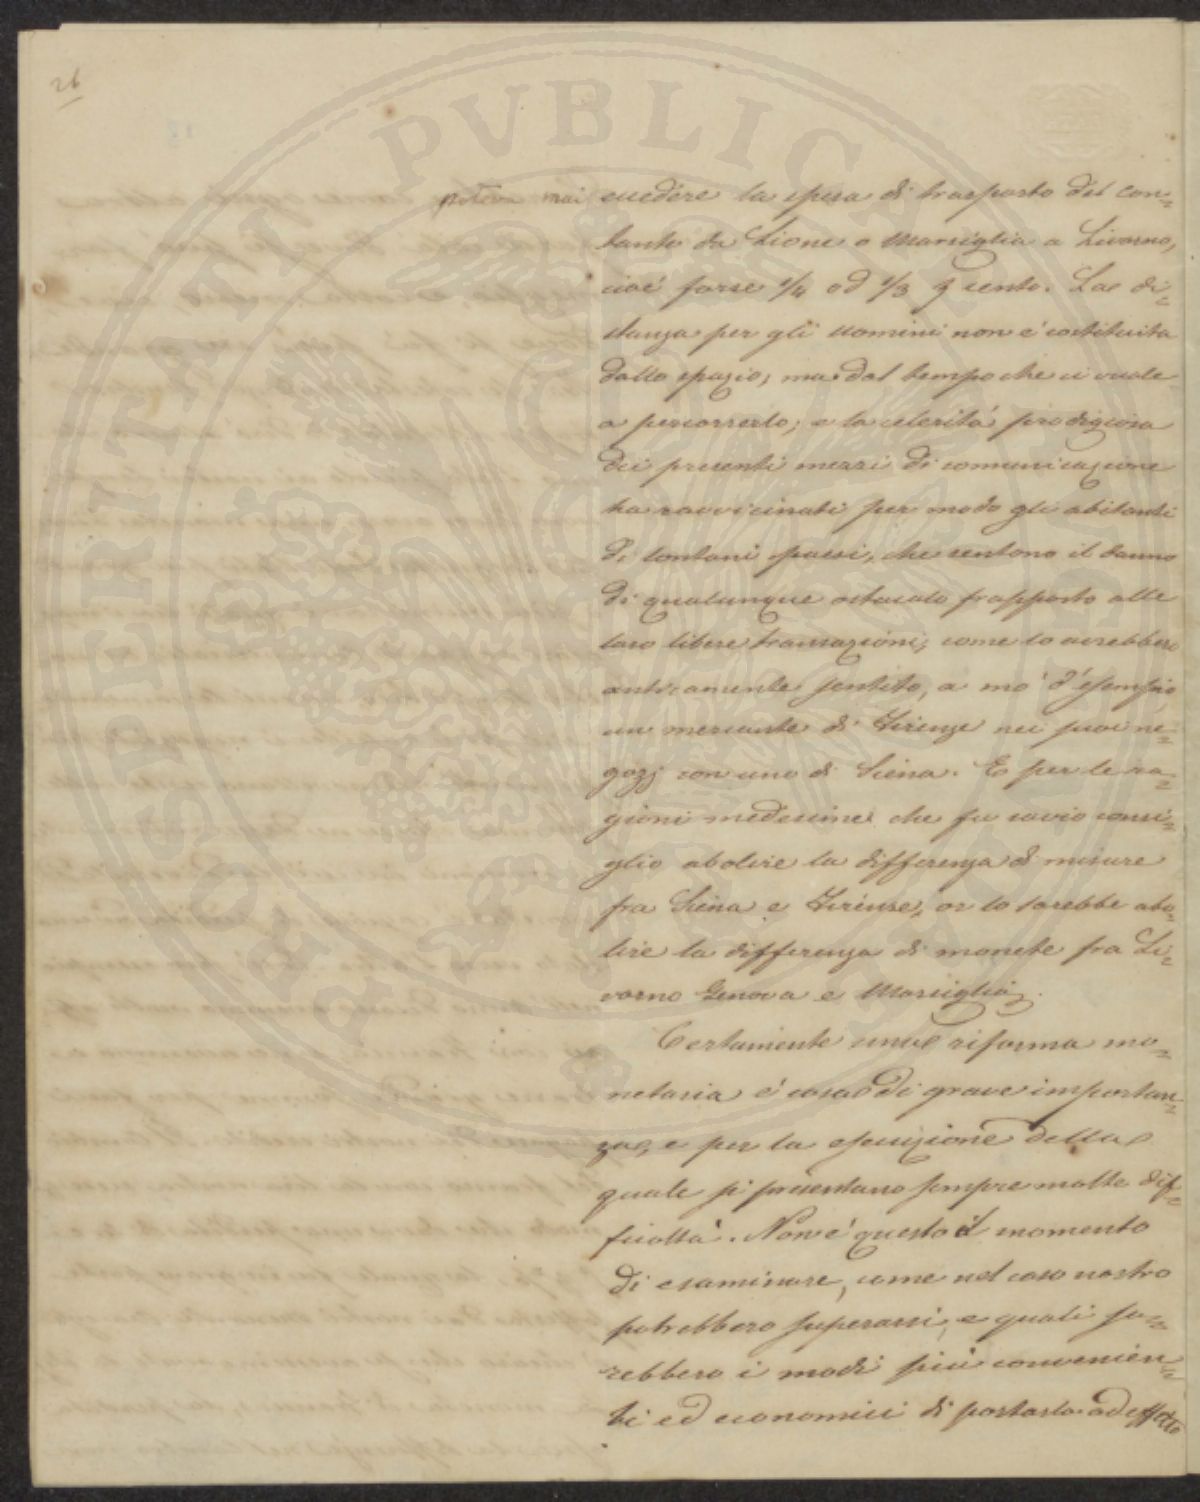 26
PROSPERITATI PVBLICAE
poteva mai eccedere la spesa di trasporto del con=
tante da Lione o Marsiglia a Livorno,
cioé forse 1/4 od 1/3 p cento. La di=
stanza per gli uomini non é costituita
dallo spazio, ma dal tempo che ci vuole
a percorrerlo; e la celeritá prodigiosa
dei presenti mezzi di comunicazione
ha ravvicinati per modo gli abitanti
di lontani paesi, che sentono il danno
di qualunque ostacolo frapposto alle
loro libere transazioni, come lo avrebbero
anticamente sentito, a mo' d'esempio
un mercante di Firenze nei suoi ne=
gozj con uno di Siena. E per le ra=
gioni medesime che fu savio consi=
glio abolire la differenza di misure
fra Siena e Firenze, or lo sarebbe abo=
lire la differenza di monete fra Li=
vorno Genova e Marsiglia.
Certamente una riforma mo=
netaria é cosa di grave importan=
za, e per la esecuzione della
quale si presentano sempre molte dif=
ficoltà. Non é questo il momento
di esaminare, come nel caso nostro
potrebbero superarsi, e quali sa=
rebbero i modi piú convenien=
ti ed economici di portarla ad effetto